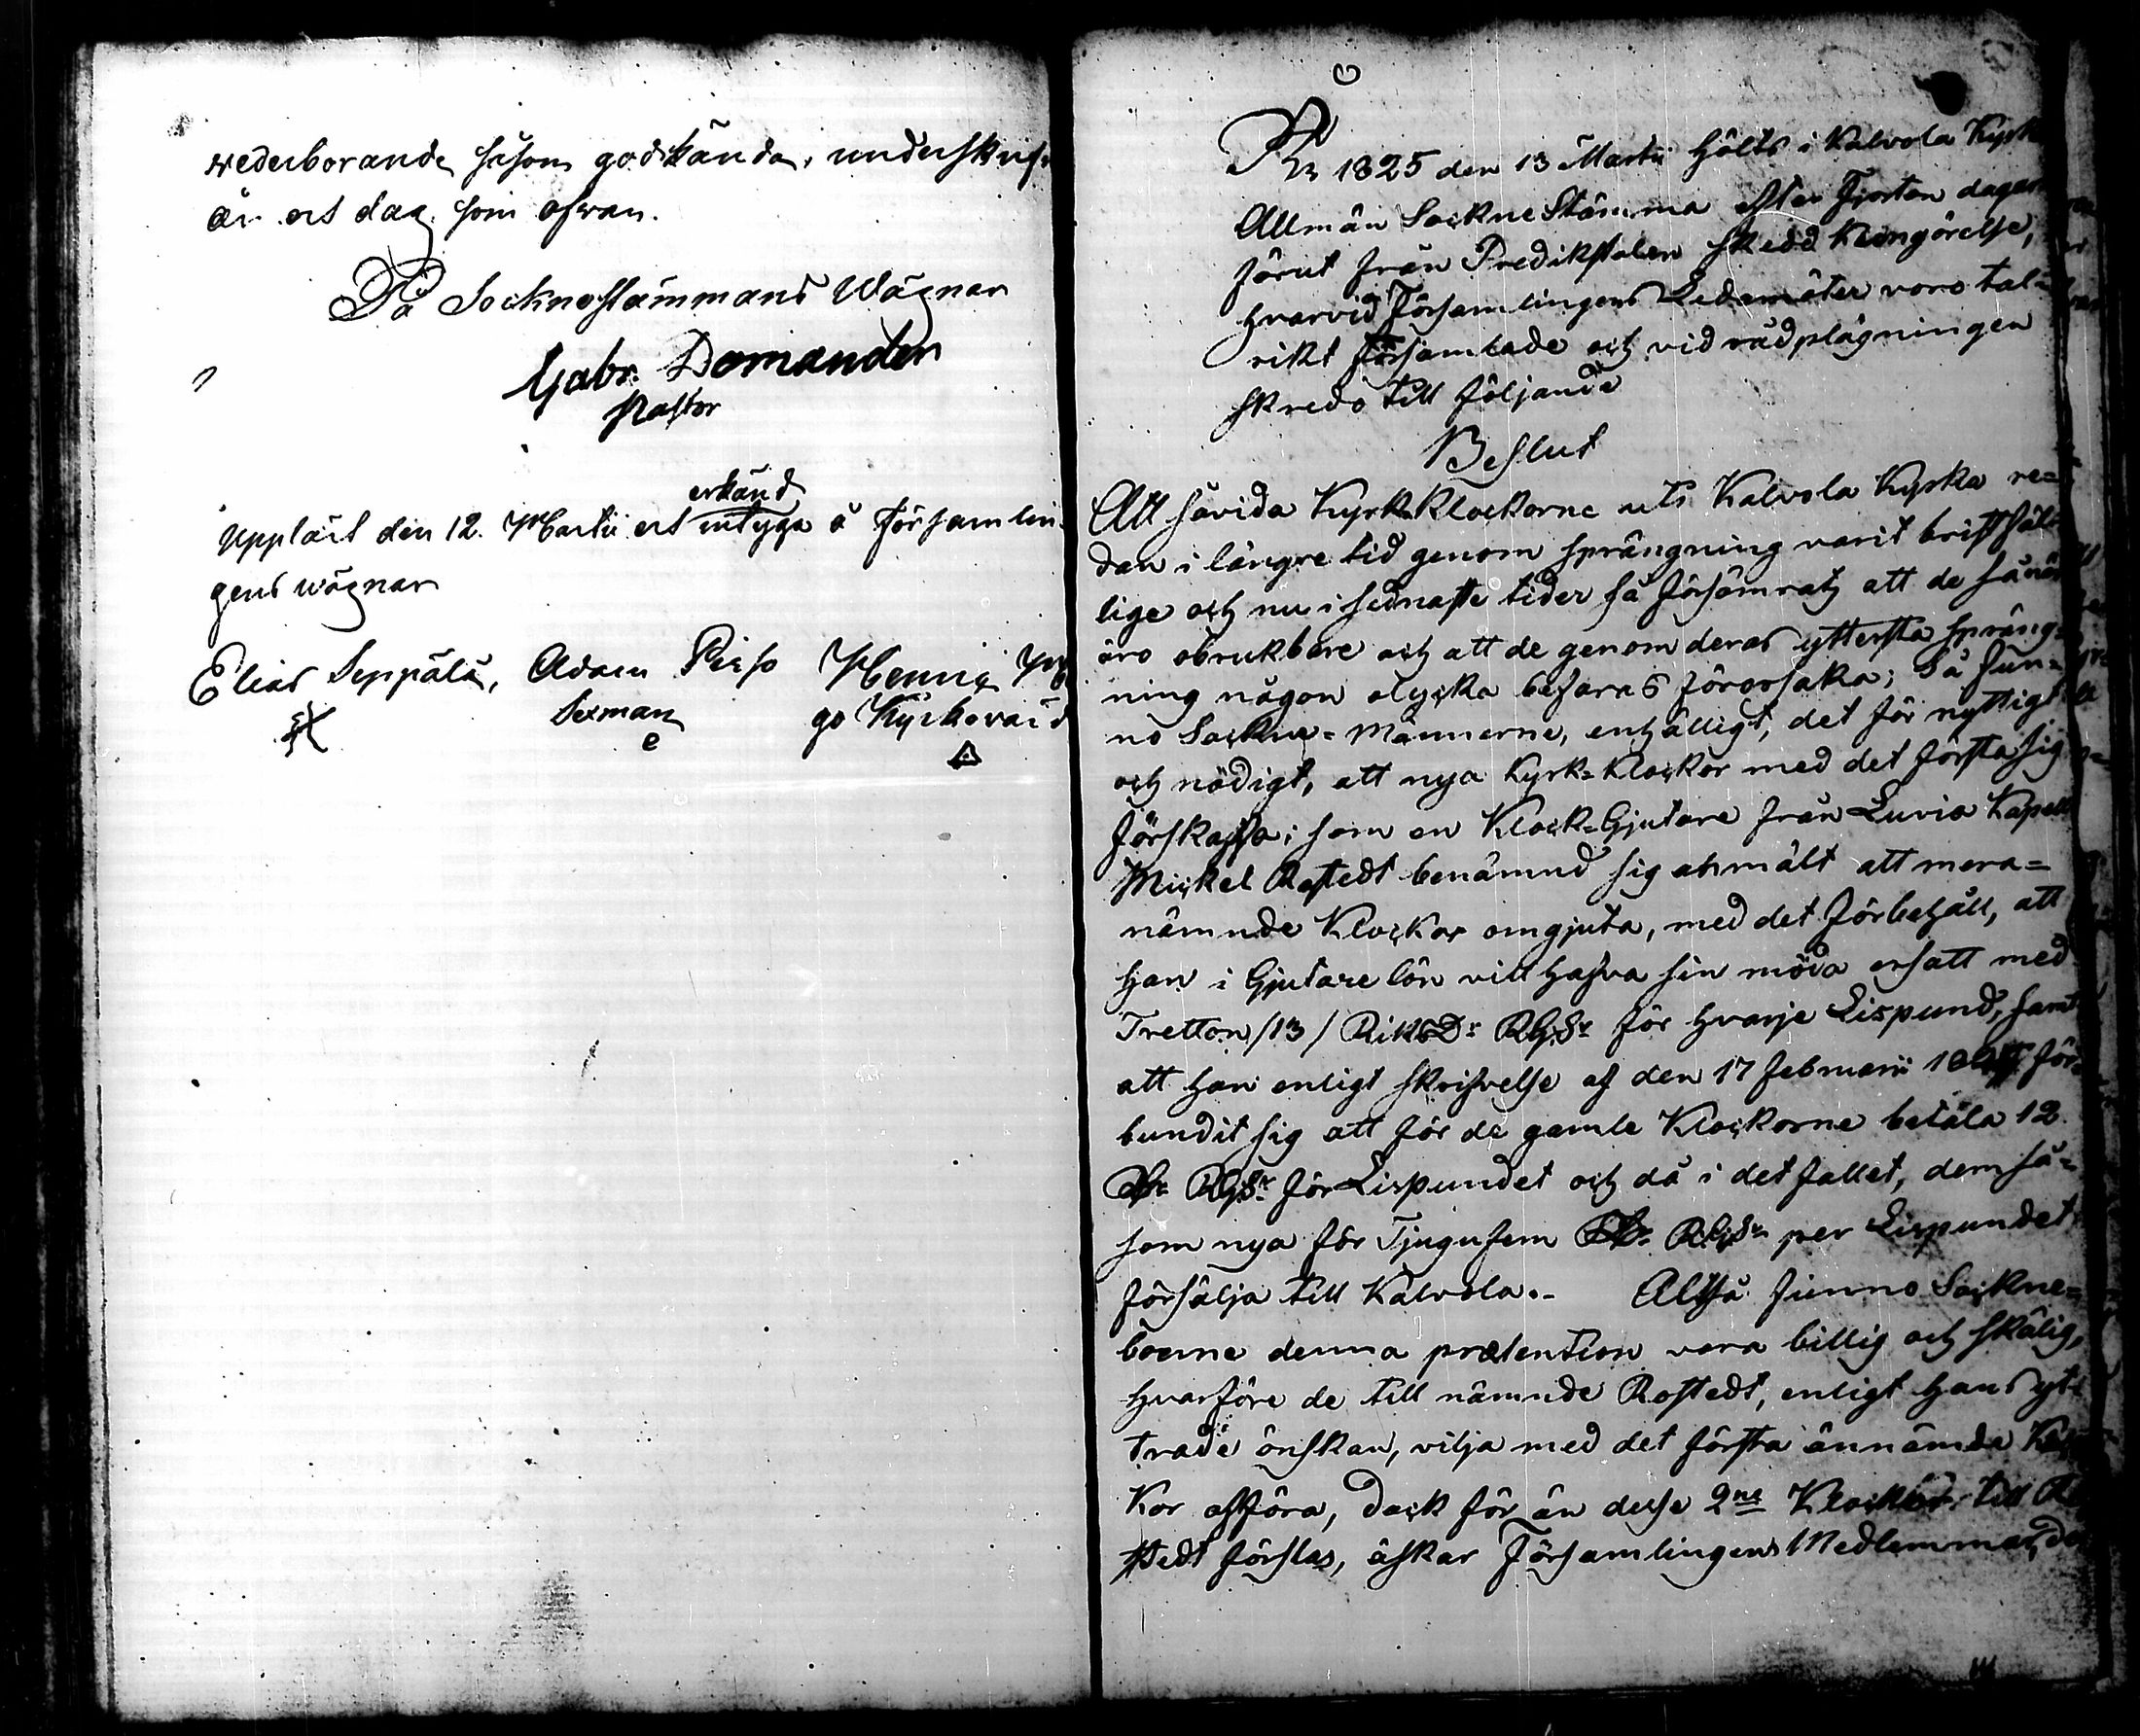 wederborande såsom godkända, underskrif
år oct dag som ofvan.
På Socknestämmans Wägnar
Gabr. Domander
Pastor
erkänd
Uppläst den 12. Martii oct intyga å Församlin-
gens wägnar
Elias Seppälä, Adam Piispo Hennig
Sexman go Kyrkovärd
År 1825 den 13 Martii hölts i Kalvola Kyrk
Allmän SockneStämma efter Fjorton dagar
förut från Predikstolen skedd kungörelse,
hvarvid Församlingens Ledamöter voro tal-
rikt församlade och vid rådplägningen
skredo till följande
Beslut
Att såvida KyrkKlockorne uti Kalvola Kyrka re=
dan i längre tid genom sprängning varit bristfäl-
lige och nu i sednaste tider så försämrats att de
äro obrukbare och att de genom deras yttersta spräng-
ning någon olycka befaras förorsaka; Så fun-
no Sockne=Männerne, enhälligt, det för nyttigt
och nödigt, att nya Kyrk=Klockor med det första sig
förskaffa; som en Klock=Gjutare från Luvia Kapell
Mickel Rostedt benämnd sig anmält att mera=
nämnde Klockor omgjuta, med det förbehåll, att
han i Gjutare lön vill hafva sin möda ersatt med
Tretton /13/ RiksDr RGSr för hvarje Lispund, samt
att han enligt skrifvelse af den 17 Februarii för-
bundit sig att för de gamle Klockorne betala 12
Dr RGSr för Lispundet och då i det fallet, dem så-
som nya för Tjugufem Dr RGSr per Lispundet
försälja till Kalvola.- Altså funno Sockne=
boerne denna prætention vara billig och skälig,
hvarföre de till nämnde Rostedt, enligt hans yt-
trade önskan, vilja med det första annämda
kor afföra, dock för än desse 2ne Klockor till
stedt förslas, äskar Församlingens Medlemmar,